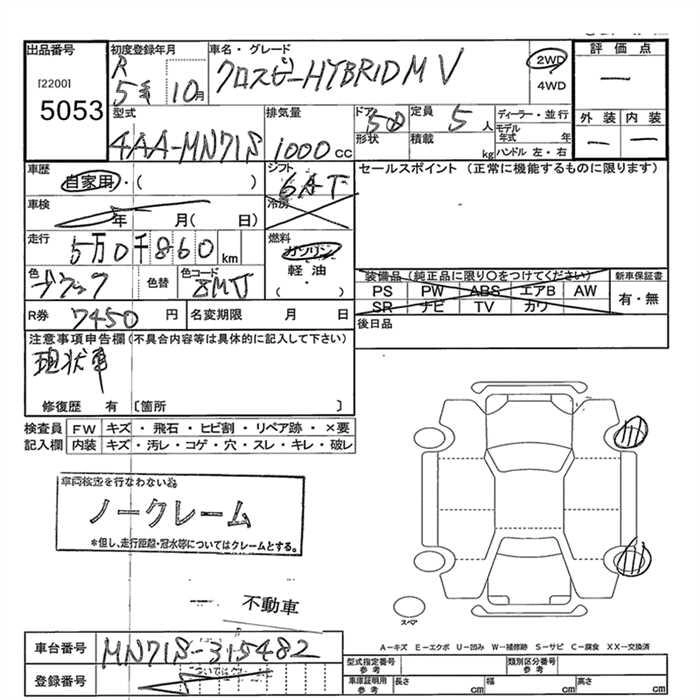 出品番号
[2200]
5053
初度登録年月
R 5年 10月
車名・グレード
クロスビーHYBRID MV
2WD
4WD
評価点
—
外装 内装
— —
型式
4AA-MN71S
排気量
1000 cc
ドア
5D
形状
定員
5人
積載
kg
ディーラー・並行
モデル
年式 年
ハンドル 左・右
車歴
自家用・( )
シフト
6AT
冷房
車検
年 月( 日)
走行
5万0千860 km
燃料
ガソリン
軽油
( ・ )
色
ブラック
色替
色コード
ZMJ
R券 7450 円
名変期限 月 日
セールスポイント (正常に機能するものに限ります)
装備品(純正品に限り○をつけてください)
PS PW ABS エアB AW
SR ナビ TV カワ
新車保証書
有・無
後日品
注意事項申告欄(不具合内容等は具体的に記入して下さい)
現状車
修復歴 有 〔箇所 〕
検査員 FW キズ・飛石・ヒビ割・リペア跡・×要
記入欄 内装 キズ・汚レ・コゲ・穴・スレ・キレ・破レ
車両検査を行なわない為
ノークレーム
*但し、走行距離・冠水等についてはクレームとする。
不動車
スペア
A-キズ E-エクボ U-凹み W-補修跡 S-サビ C-腐食 XX-交換済
車台番号 MN71S-315482
登録番号
型式指定番号
参考
類別区分番号
参考
車庫証明用
参考
長さ cm 幅 cm 高さ cm